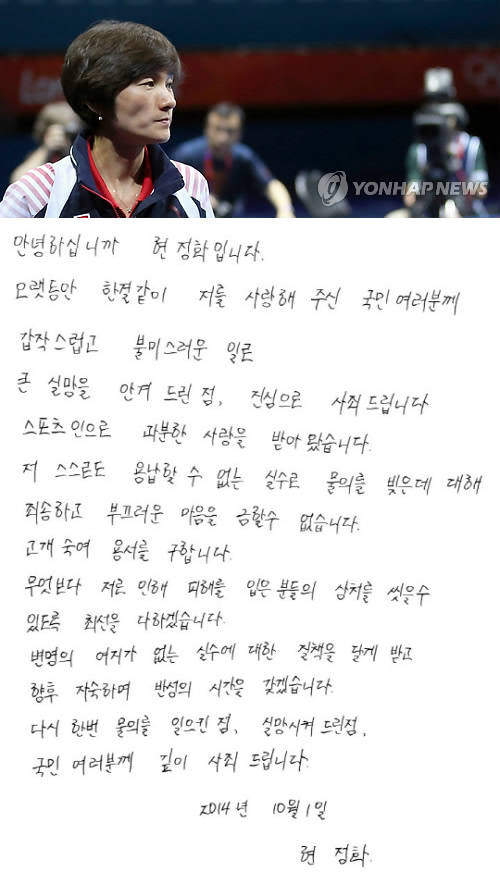 YONHAP NEWS
안녕하십니까 현 정화입니다.
오랫동안 한결같이 저를 사랑해 주신 국민 여러분께
갑작스럽고 불미스러운 일로
큰 실망을 안겨 드린 점, 진심으로 사죄 드립니다
스포츠인으로 과분한 사랑을 받아 왔습니다.
저 스스로도 용납할 수 없는 실수로 물의를 빚은데 대해
죄송하고 부끄러운 마음을 금할수 없습니다.
고개 숙여 용서를 구합니다.
무엇보다 저로 인해 피해를 입은 분들의 상처를 씻을수
있도록 최선을 다하겠습니다.
변명의 여지가 없는 실수에 대한 질책을 달게 받고
향후 자숙하며 반성의 시간을 갖겠습니다.
다시 한번 물의를 일으킨 점, 실망시켜 드린점,
국민 여러분께 깊이 사죄 드립니다.
2014년 10월 1일
현 정화.